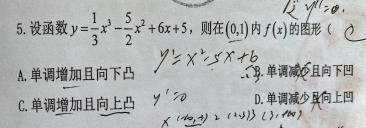 y''=0.
5. 设函数 y = 1/3 x³ − 5/2 x² + 6x + 5，则在 (0,1) 内 f(x) 的图形（ C
y' = x² - 5x + 6
A. 单调增加且向下凸 B. 单调减少且向下凹
C. 单调增加且向上凸 y'=0 D. 单调减少且向上凹
x